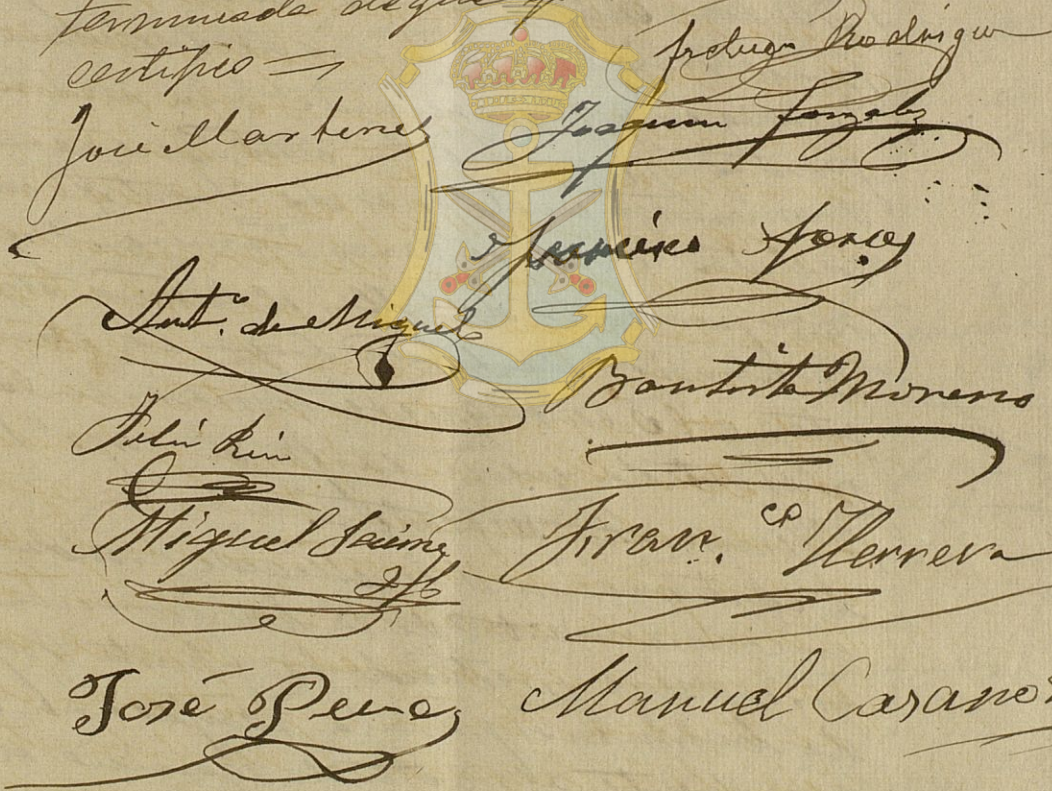 terminada de que
certifico =
Rodrigue
José Martinez
Joaquin Gonzalez
Francisco
Ant.º de Miguel
Bautista Moreno
Felix
Miguel Jaime
Fran.co Herrera
José Perez
Manuel Casano